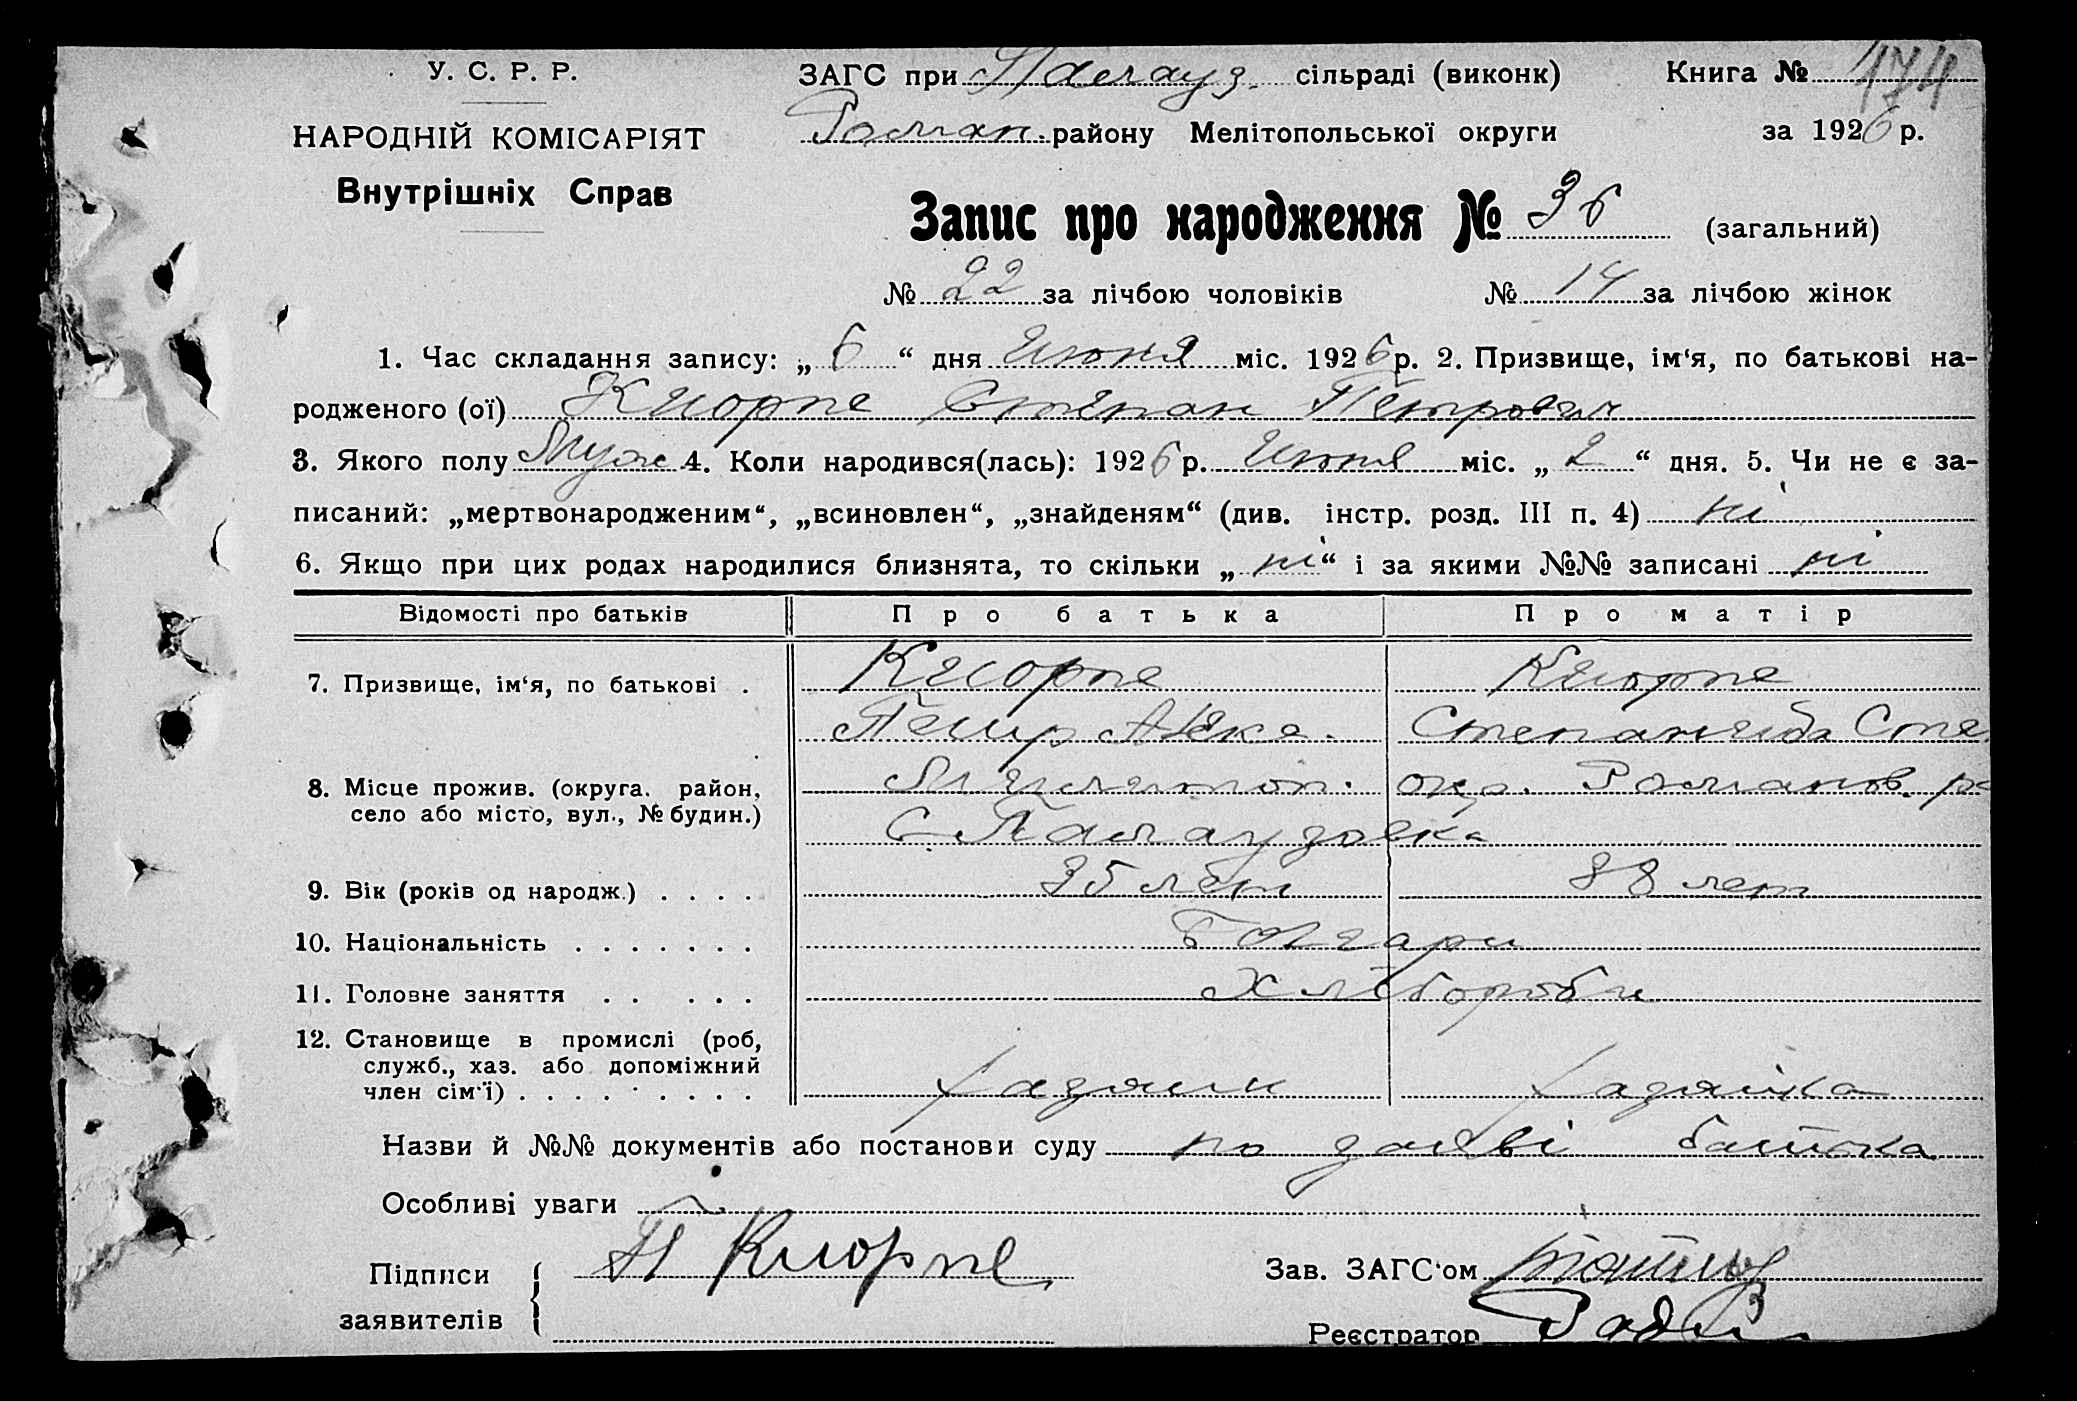 У. С. Р. Р.
НАРОДНІЙ КОМІСАРІЯТ
Внутрішніх Справ
ЗАГС при Палауз. сільраді (виконк) Книга № 174
Роман. району Мелітопольської округи за 1926 р.
Запис про народження № 36 (загальний)
№ 22 за лічбою чоловіків № 14 за лічбою жінок
1. Час складання запису: „ 6 “ дня Июня міс. 1926 р. 2. Призвище, ім‘я, по батькові на-
родженого (ої) Кюрпе Степан Петрович
3. Якого полу Муж 4. Коли народився(лась): 1926 р. Июня міс. „ 2 “ дня. 5. Чи не є за-
писаний: „мертвонародженим“, „всиновлен“, „знайденям“ (див. інстр. розд. III п. 4) ні
6. Якщо при цих родах народилися близнята, то скільки „ ні “ і за якими №№ записані ні
Відомості про батьків Про батька Про матір
7. Призвище, ім‘я, по батькові . Кюрпе Кюрпе
Петр Степанида Сте
8. Місце прожив. (округа, район, Мелитоп. окр. Романов. ра
село або місто, вул., № будин.) С. Палаузовка
9. Вік (років од народж.) . . . . 35 лет 38 лет
10. Національність . . . . . . . Болгари
11. Головне заняття . . . . . Хлібороби
12. Становище в промислі (роб,
служб., хаз. або допоміжний
член сім‘ї) . . . . . . . . . хазяин хазяйка
Назви й №№ документів або постанови суду по заяві батька
Особливі уваги
Підписи П Кюрпе Зав. ЗАГС‘ом
заявителів Реєстратор